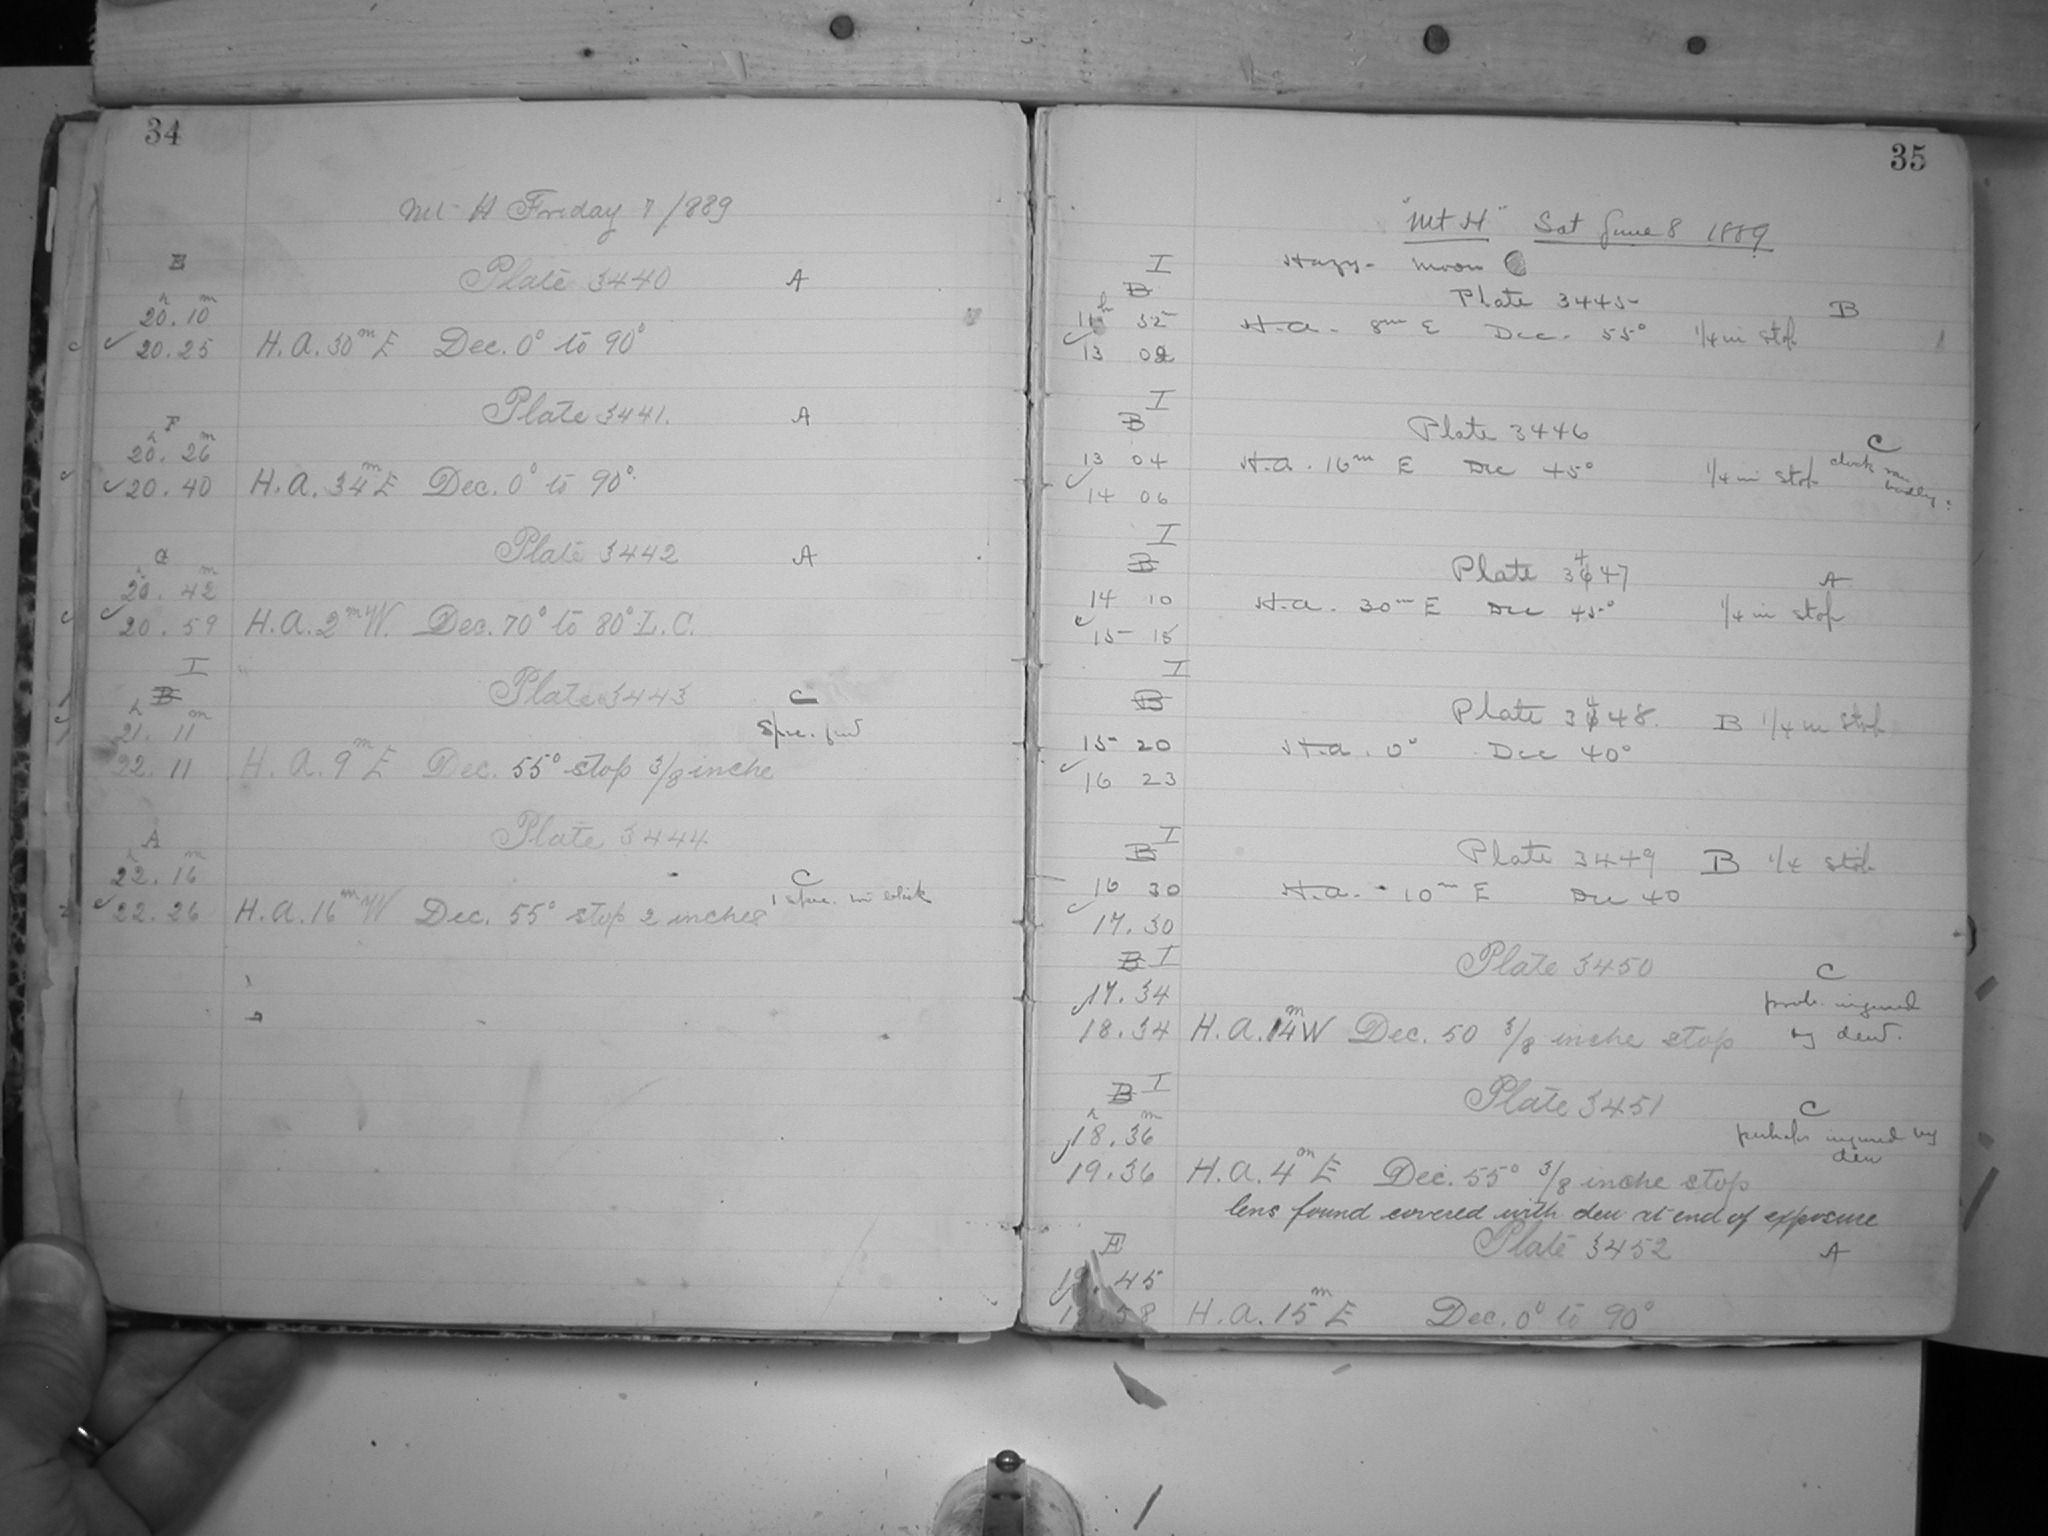 34
Mt H Friday 7/889
Plate 3440 A
h m
20.10
20.25 H.A. 30m E Dec. 0° to 90°
F Plate 3441. A
h m
20.26
20.40 H.A. 34m E Dec. 0° to 90°.
Plate 3442 A
h m
20.42
20.59 H.A. 2m W. Dec. 70° to 80° L.C.
I
B Plate 3443 C
h m
21.11
22.11 H.A. 9m E Dec. 55° stop 3/8 inche
A Plate 3444 C
h m
22.16
22.26 H.A. 16m W Dec. 55° stop 2 inches
35
"Mt H" Sat June 8 1889
I Hazy - moon
B Plate 3445 B
52 H.A. 8m E Dec. 55° 1/4 in stop
13 02
I
B Plate 3446 C
13 04 H.A. 16m E Dec 45° 1/4 in stop clock ran badly.
14 06
I
B Plate 3447 A
14 10 H.A. 30m E Dec 45° 1/4 in stop
15 15
I
B Plate 3448. B 1/4 in stop
15 20 H.A. 0° Dec 40°
16 23
I
B Plate 3449 B 1/4 stop
16 30 H.A. 10m E Dec 40
17.30
B I Plate 3450 C
17.34 prob. injured
18.34 H.A. 14m W Dec. 50 3/8 inche stop by dew.
B I Plate 3451 C
h m
18.36 perhaps injured by dew
19.36 H.A. 4m E Dec. 55° 3/8 inche stop
lens found covered with dew at end of exposure
Plate 3452 A
45
58 H.A. 15m E Dec. 0° to 90°